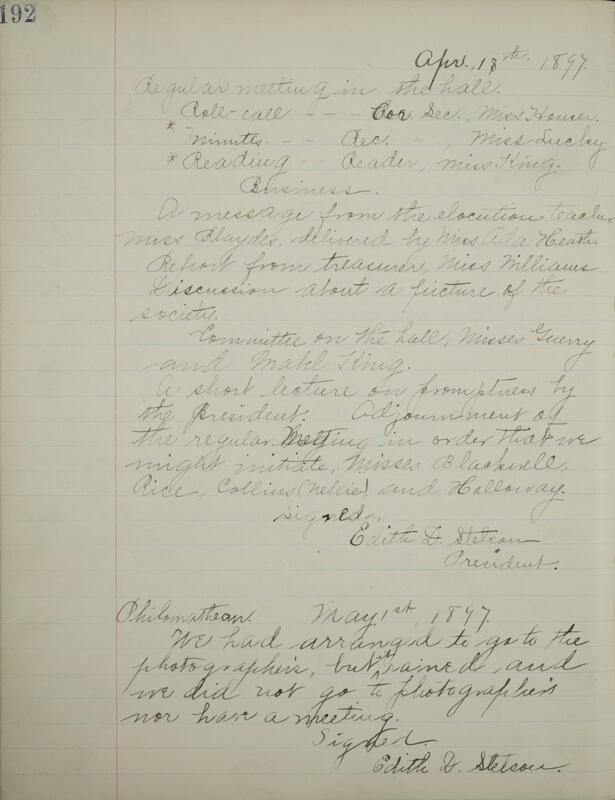 192
Apr. 18th. 1897.
Regular meeting in the hall.
Roll-call - - - Cor. Sec., Miss Houser.
* Minutes. - - Rec. " ., Miss Lucky
* Reading - - Reader, Miss King.
Business.
A message from the elocution teacher
Miss Blaydes, delivered by Miss Ada Heath.
Report from treasurer, Miss Williams.
Discussion about a picture of the
society.
Committee on the hall, Misses Guerry
and Mabl King.
A short lecture on promptness by
the President. Adjournment of
the regular Meeting in order that we
might initiate, Misses Blackwell,
Rice, Collins (Nellie), and Holloway.
Signed.,
Edith D. Stetson
President.
Philomathean. May 1st, 1897.
We had arranged to go to the
photographer's, but it rained and
we did not go to photographer's
nor have a meeting.
Signed.
Edith D. Stetson.